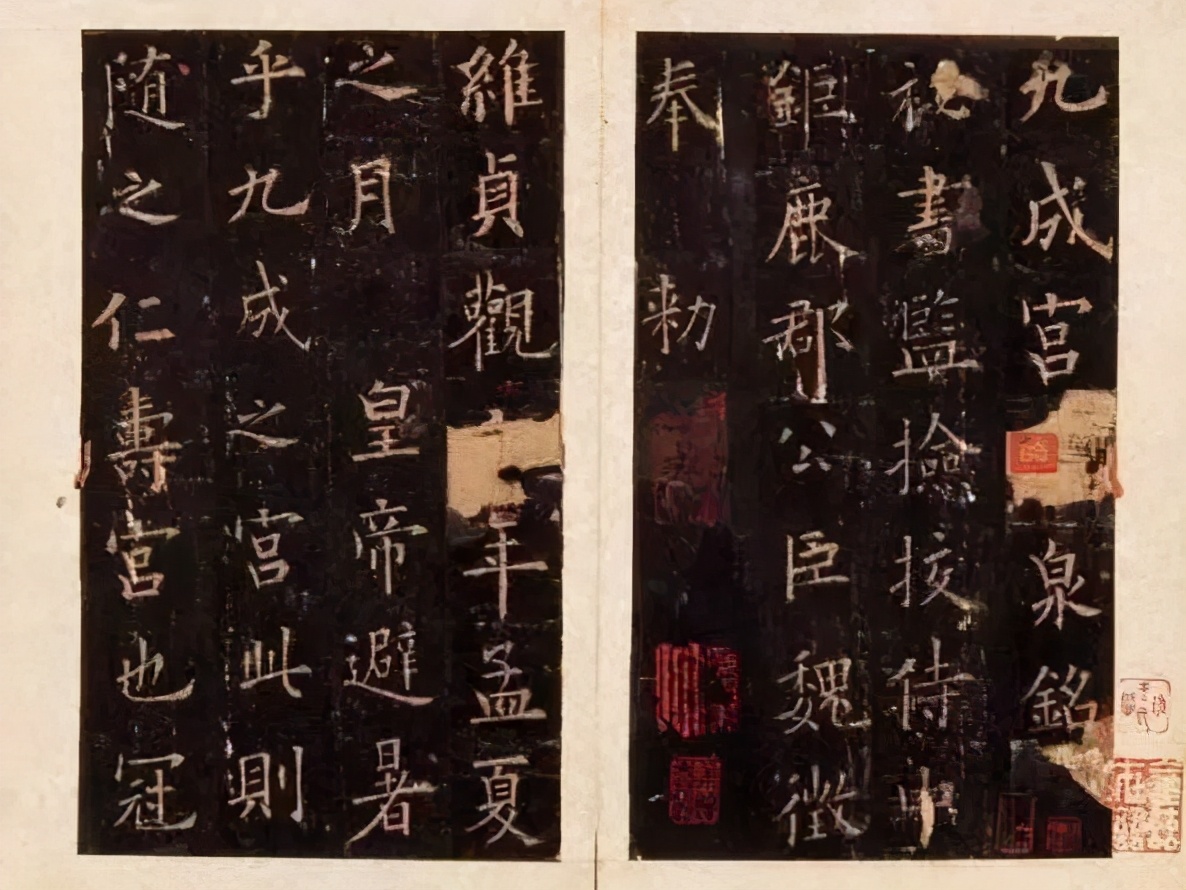 九成宮泉銘
秘書監撿挍侍中
鉅鹿郡公臣魏徵
奉勑
維貞觀年孟夏
之月皇帝避暑
乎九成之宮此則
随之仁壽宮也冠